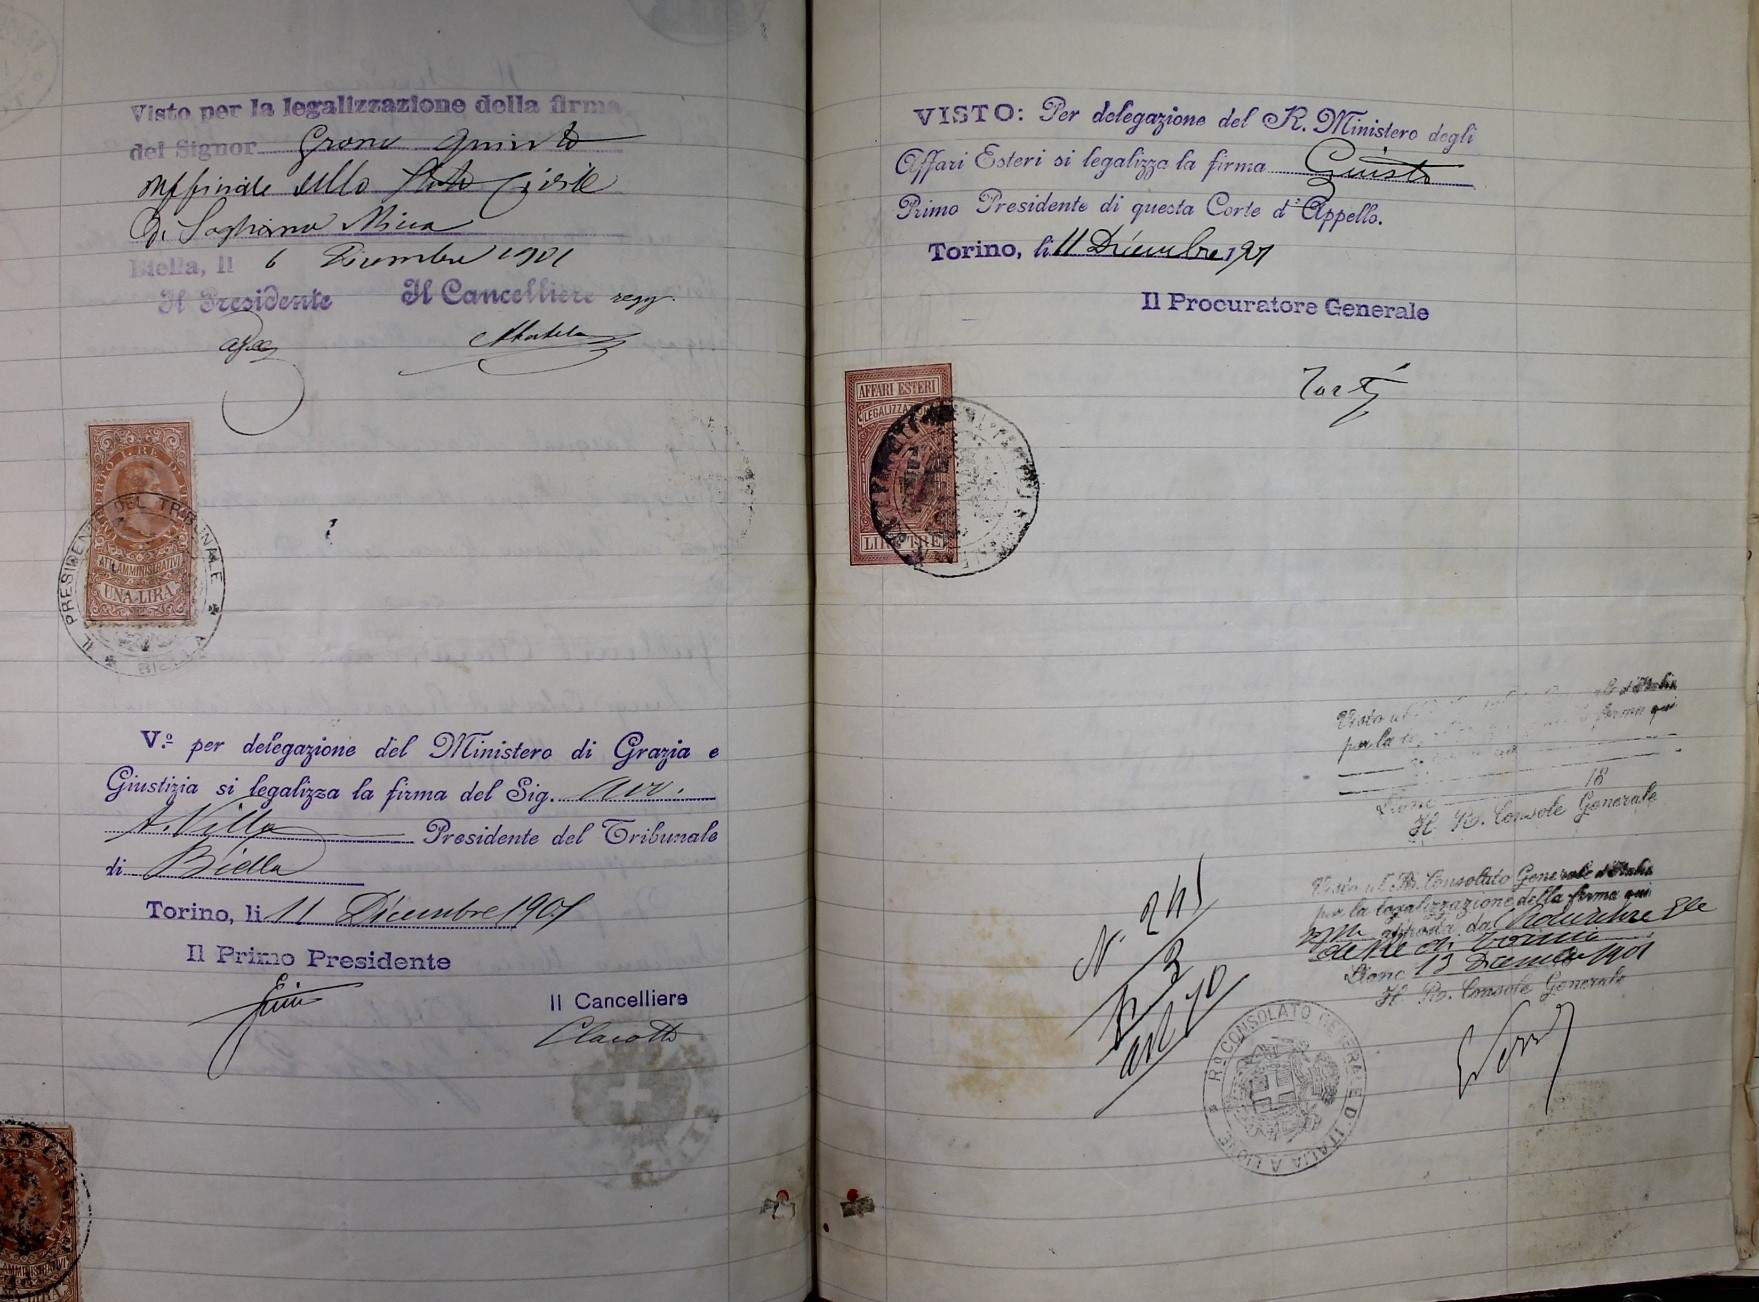 Visto per la legalizzazione della firma
del Signor Grono Quinto
Uffiziale dello Stato Civile
di Sagliano Micca
Biella, li 6 Dicembre 1901
Il Presidente Il Cancelliere regg.
UNA LIRA
IL PRESIDENTE DEL TRIBUNALE
V.º per delegazione del Ministero di Grazia e
Giustizia si legalizza la firma del Sig. Avv.
A. Villa Presidente del Tribunale
di Biella
Torino, li 11 Dicembre 1901
Il Primo Presidente
Il Cancelliere
VISTO: Per delegazione del R. Ministero degli
Affari Esteri si legalizza la firma Giusto
Primo Presidente di questa Corte d'Appello.
Torino, li 11 Dicembre 1901
Il Procuratore Generale
AFFARI ESTERI
LIRE TRE
per la
18
Lione
Il R. Console Generale
Visto al R. Consolato Generale d'Italia
per la legalizzazione della firma qui
apposta dal Procuratore Gle
Lione 13 Dicembre 1901
Il R. Console Generale
N. 245
3
art 70
Rº CONSOLATO GENERALE D'ITALIA A LIONE